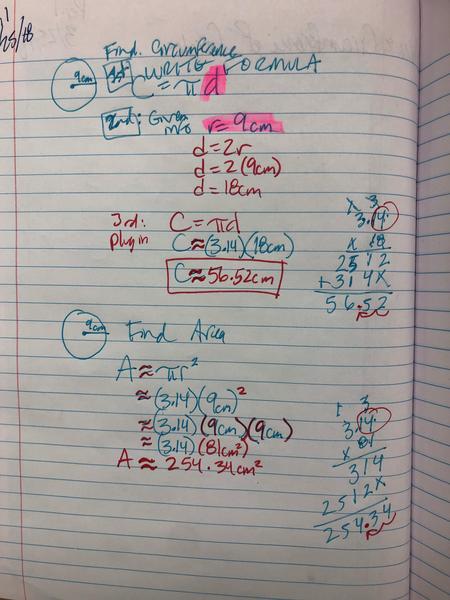 Find Circumference
9cm 1st WRITE FORMULA
C = πd
2nd: Given info r = 9cm
d = 2r
d = 2(9cm)
d = 18cm
3rd: C = πd
Plug in C ≈ (3.14)(18cm)
C ≈ 56.52cm
3
3.14
x 18
2512
+314X
56.52
9cm Find Area
A ≈ πr²
≈ (3.14)(9cm)²
≈ (3.14)(9cm)(9cm)
≈ (3.14)(81cm²)
A ≈ 254.34cm²
1 3
3.14
x 81
314
2512X
254.34